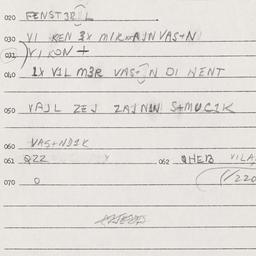 020 FENSTƎRL
030 VI KEN IX MIR AJN VAS+N
031 VI KON +
040 IX VIL MƎR VAS+N DI HENT
050 VAJL ZEJ ZAJNIN S+MUCIK
060 VAS+NDIK
061 QZZ Y 062 QHEB VILA
070 0 1/220